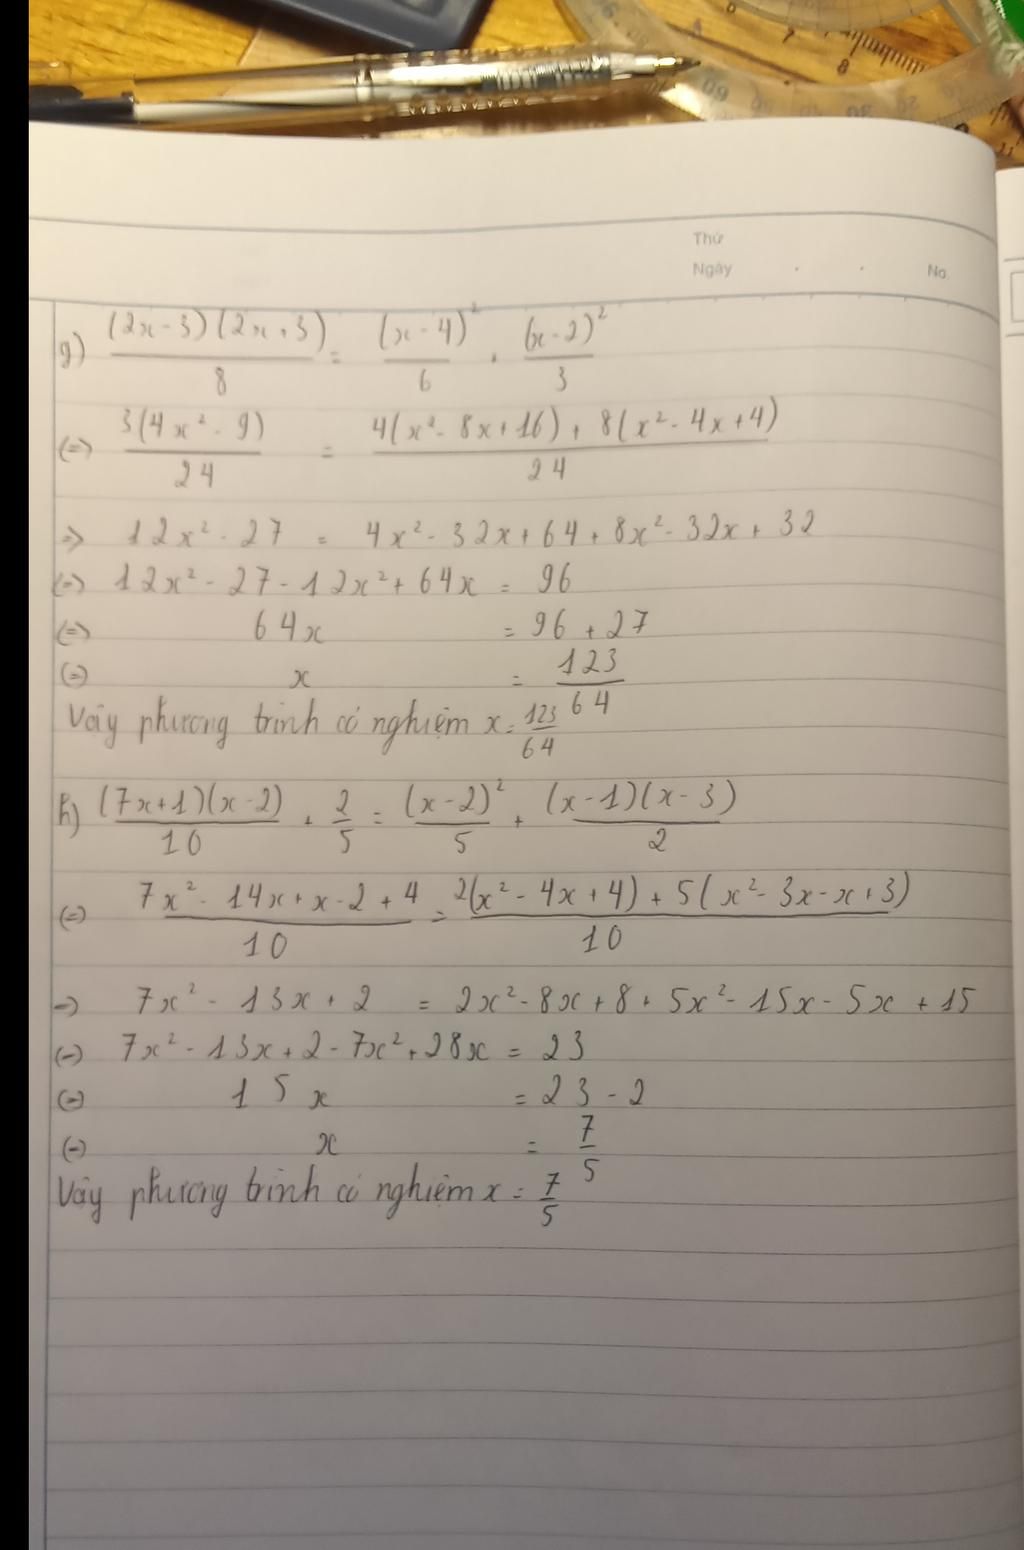 Thứ
Ngày . . No.
g) (2x-3)(2x+3)/8 = (x-4)²/6 + (x-2)²/3
(=) 3(4x²-9)/24 = 4(x²-8x+16)+8(x²-4x+4)/24
=> 12x²-27 = 4x²-32x+64+8x²-32x+32
(=) 12x²-27-12x²+64x = 96
(=) 64x = 96+27
(=) x = 123/64
Vậy phương trình có nghiệm x = 123/64
h) (7x+1)(x-2)/10 + 2/5 = (x-2)²/5 + (x-1)(x-3)/2
(=) 7x²-14x+x-2+4/10 = 2(x²-4x+4)+5(x²-3x-x+3)/10
=> 7x²-13x+2 = 2x²-8x+8+5x²-15x-5x+15
(=) 7x²-13x+2-7x²+28x = 23
(=) 15x = 23-2
(=) x = 7/5
Vậy phương trình có nghiệm x = 7/5